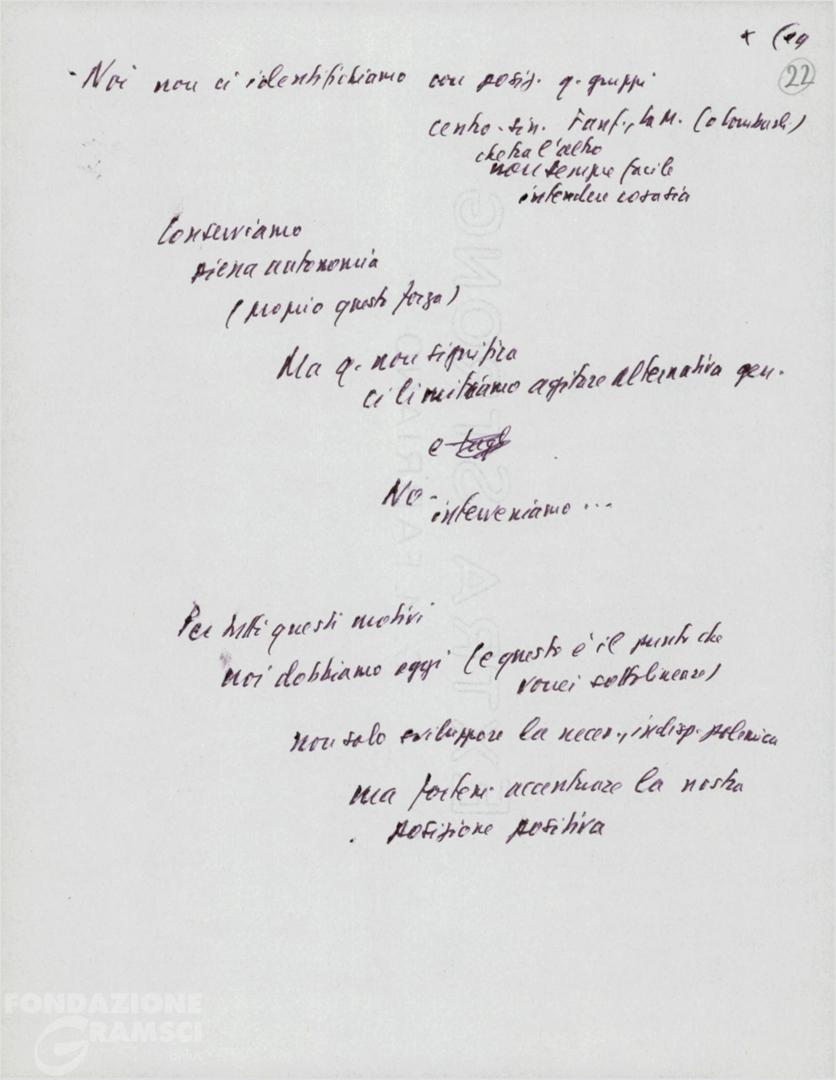 22
- Noi non ci identifichiamo con posiz. q. gruppi
centro-sin. Fanf., La M. (o Lombardi)
che tra l'altro
non sempre facile
intendere cosa sia
Conserviamo
piena autonomia
(proprio questo forza)
Ma q. non significa
ci limitiamo agitare alternativa gen.
e
No -
interveniamo ...
Per tutti questi motivi
noi dobbiamo oggi (e questo è il punto che
vorrei sottolineare)
non solo sviluppare la necess., indisp. polemica
ma fortem. accentuare la nostra
posizione positiva
EXTRA STRONG
FONDAZIONE
GRAMSCI